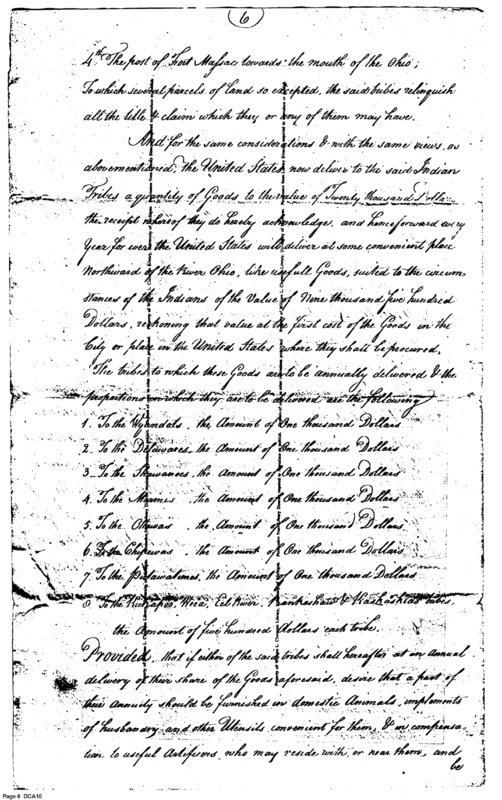 6
4th The post of Fort Massac towards the mouth of the Ohio;
To which several parcels of Land so excepted, the said tribes relinquish
all the title & claim which they or any of them may have.
And for the same considerations & with the same views, as
abovementioned, the United States now deliver to the said Indian
Tribes a quantity of Goods to the value of Twenty thousand Dollars
the receipt whereof they do hereby acknowledge, and henceforward every
Year for ever the United States will deliver at some convenient place
Northward of the River Ohio, like usefull Goods, suited to the circum-
stances of the Indians of the Value of Nine thousand five hundred
Dollars, reckoning that value at the first cost of the Goods in the
City or place in the United States where they shall be procured.
The tribes to which these Goods are to be annually delivered & the
proportions in which they are to be delivered are the following
1. To the Wyandots, the Amount of One thousand Dollars
2 To the Delawares, the amount of One thousand Dollars
3 To the Shawanoes, the amount of One thousand Dollars
4. To the Miamis, the Amount of One thousand Dollars
5. To the Ottawas, the Amount of One thousand Dollars,
6. To the Chipewas, the Amount of One thousand Dollars
7. To the Putawatomes, the Amount of One thousand Dollars
8. To the Kickapoo, Weea, Eel River, Piankashaw & Kaskaskias tribes,
the Amount of five hundred dollars each tribe.
Provided, that if either of the said tribes shall hereafter at an annual
delivery of their share of the Goods aforesaid, desire that a part of
their Annuity should be furnished in domestic Animals, implements
of husbandry and other Utensils convenient for them, & in compensa-
tion to useful Artificers who may reside with or near them, and
be
Page 6 DCA10